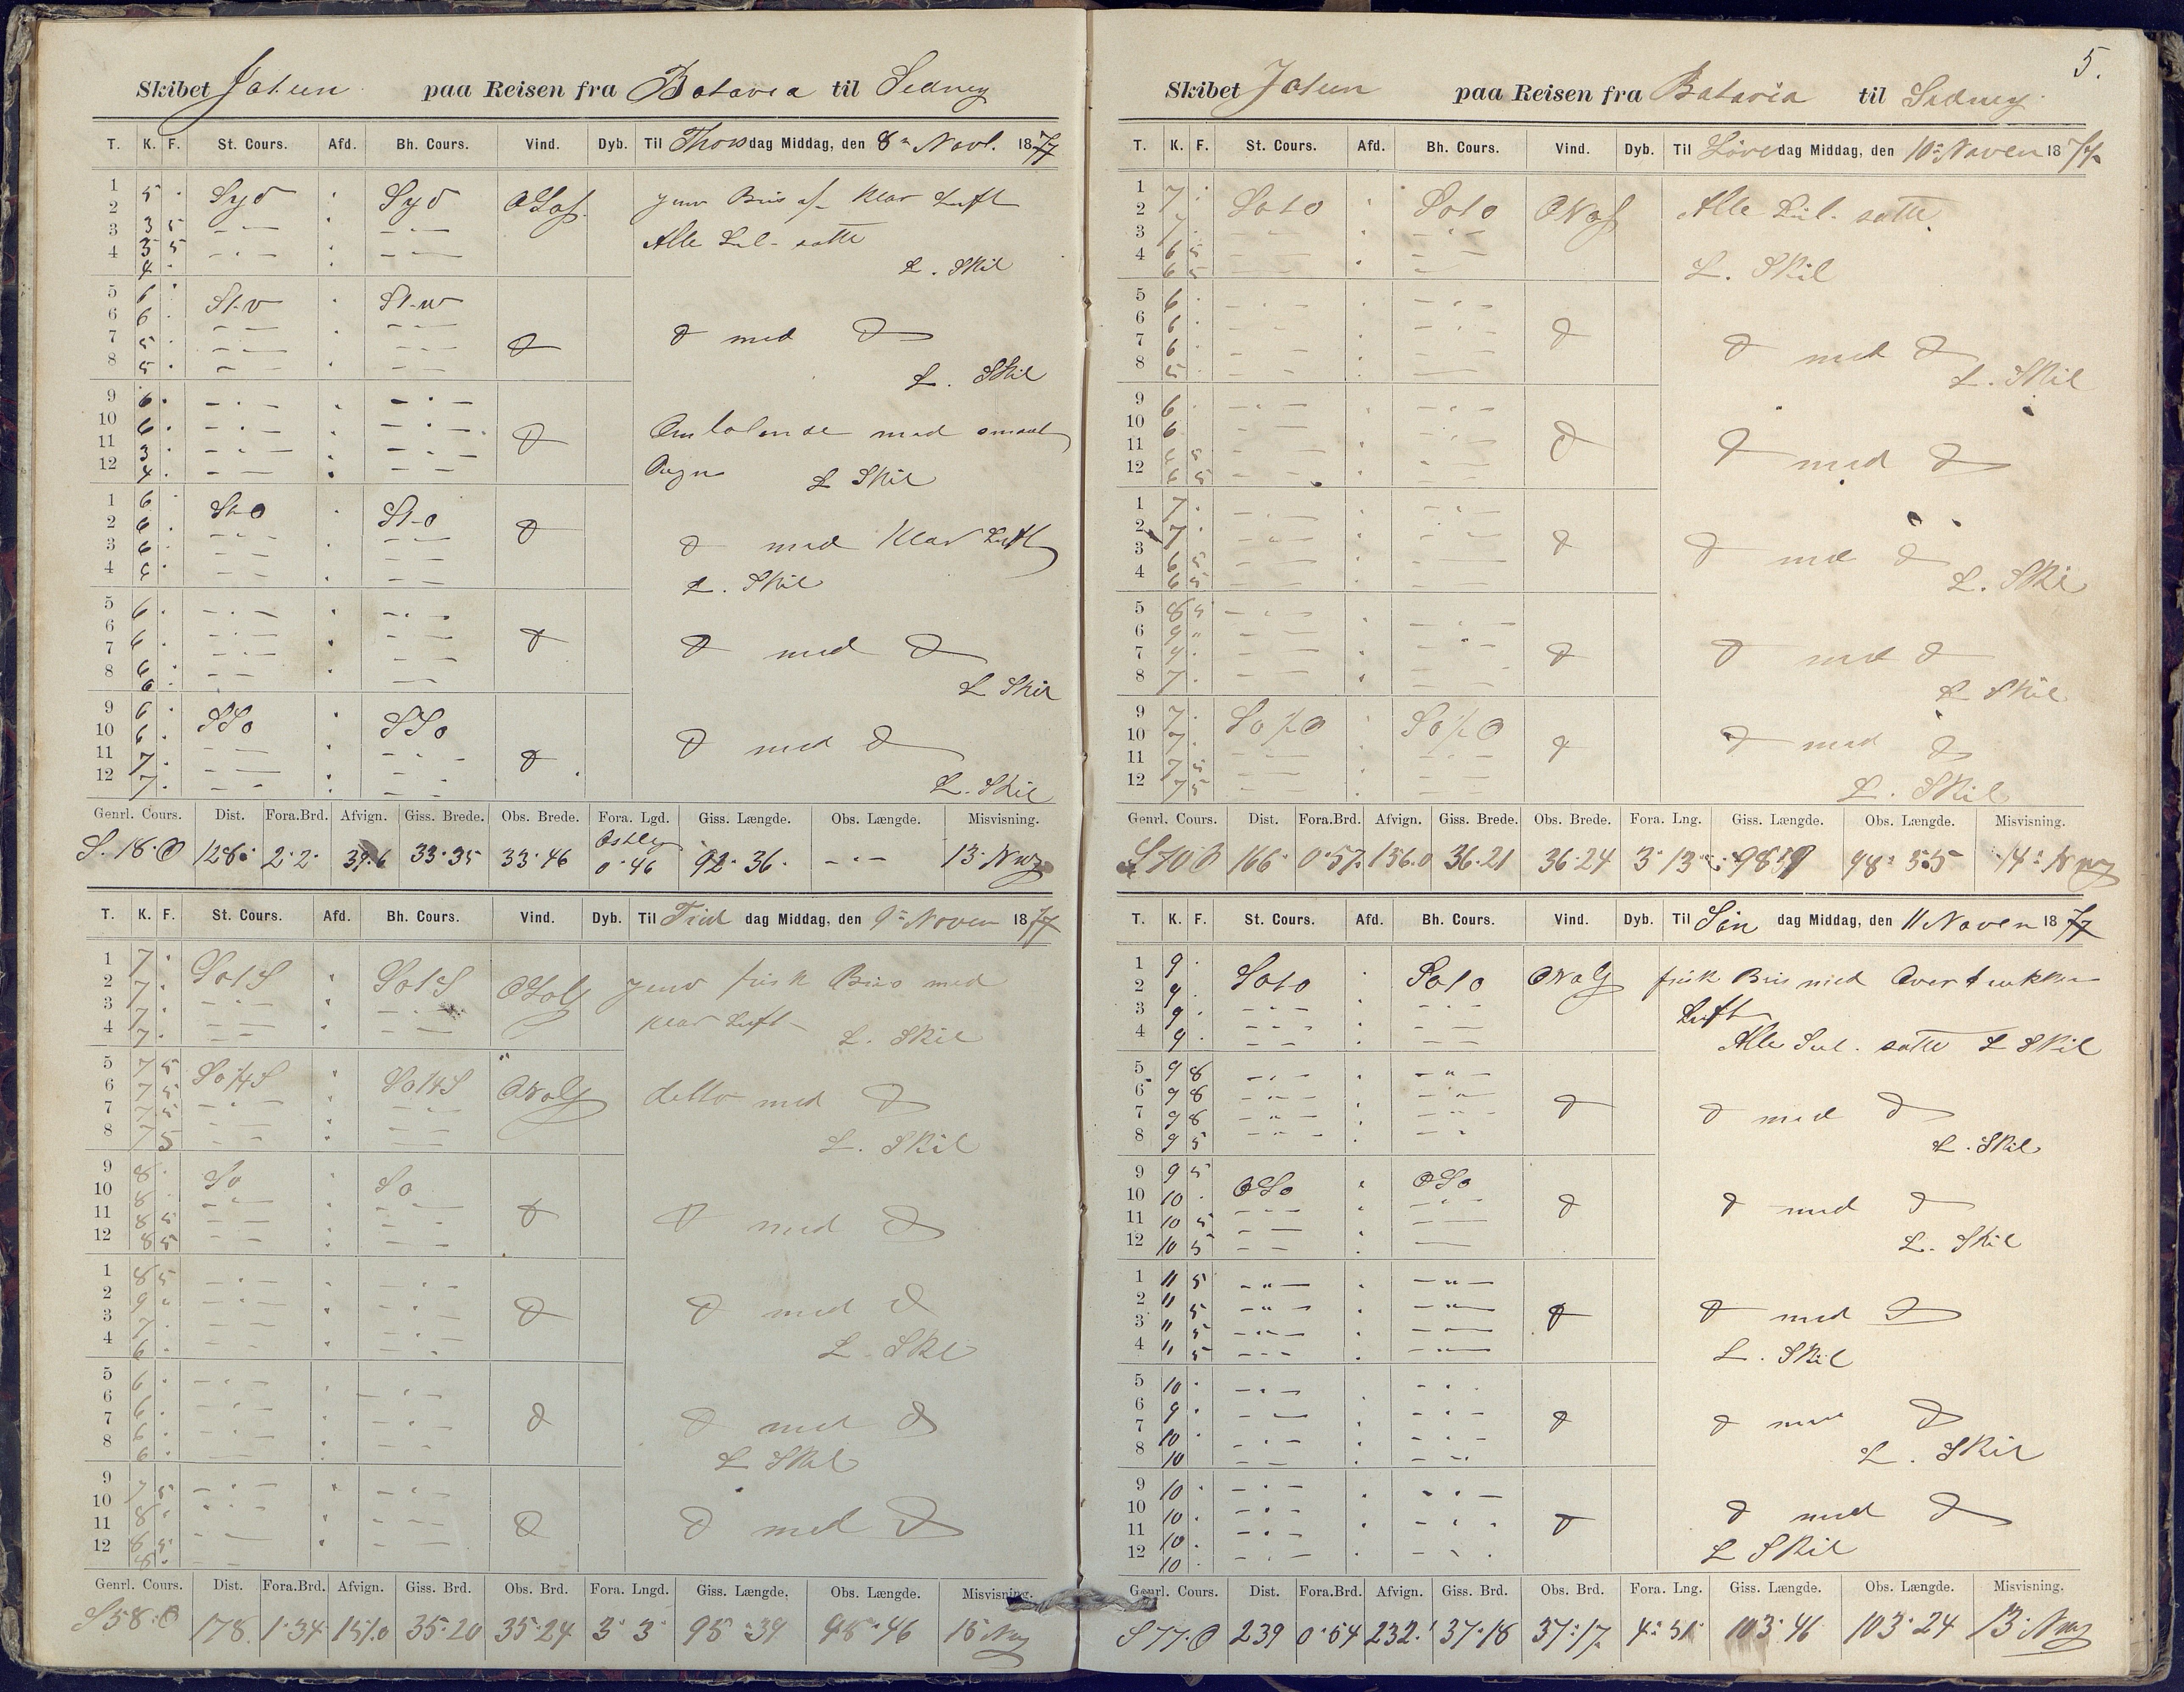 Skibet Jotun paa Reisen fra Batavia til Sidney
T. K. F. St. Cours. Afd. Bh. Cours. Vind. Dyb. Til Thorsdag Middag, den 8de Novb. 1877
1 5 . Syd . Syd OSO
2 3 5
3 3 5
4 4 .
Alle Seil satte
L. Skil
5 6 . St.v St.w
6 6 .
7 5 .
8 5 .
D med D
L. Skil
9 6 .
10 6 .
11 3 .
12 4 .
Omlobende med smaa
L Skil
1 6 . St.o St.o
2 6 .
3 6 .
4 6 .
D med Klar Luft
L. Skil
5 6 .
6 6 .
7 6 .
8 6 .
D med D
L Skil
9 6 . SSo SSo
10 6 .
11 7 .
12 7 .
D med D
L. Skil
Genrl. Cours. Dist. Fora.Brd. Afvign. Giss. Brede. Obs. Brede. Fora. Lgd. Giss. Længde. Obs. Længde. Misvisning.
S.18.O 128. 2.2. 39.6 33.35 33.46 0.46 92.36. - 13. Nvg
T. K. F. St. Cours. Afd. Bh. Cours. Vind. Dyb. Til Fredag Middag, den 9de Novem 1877
1 7 . SotS SotS
2 7 .
3 7 .
4 7 .
jevn frisk Bris med
klar Luft
L. Skil
5 7 5
6 7 5
7 7 5
8 7 5
detto med D
L. Skil
9 8 . So So
10 8 .
11 8 5
12 8 5
D med D
1 8 5
2 9 .
3 7 .
4 6 .
D med D
L. Skil
5 6 .
6 6 .
7 6 .
8 6 .
D med D
L Skil
9 7 5
10 8 .
11 8 5
12 8 .
D med D
Genrl. Cours. Dist. Fora.Brd. Afvign. Giss. Brd. Obs. Brd. Fora. Lngd. Giss. Længde. Obs. Længde. Misvisning.
S58.O 178. 1.34 151.0 35.20 35.24 3.3. 95.39 Nvg
5.
Skibet Jotun paa Reisen fra Batavia til Sidney
T. K. F. St. Cours. Afd. Bh. Cours. Vind. Dyb. Til Løverdag Middag, den 10de Novem 1877
1 7 . Soto . Soto
2 7 .
3 6 5
4 6 5
Alle Seil satte
L. Skil
5 6 .
6 6 .
7 6 .
8 5 .
D med D
L. Skil
9 6 .
10 6
11 6 5
12 6 5
D med D
1 7 .
2 7 .
3 6 5
4 6 5
D med D
L. Skil
5 8 5
6 9 .
7 9 .
8 7 .
D med D
L Skil
9 7 .
10 7 .
11 7 5
12 7 5
D med D
L. Skil
Genrl. Cours. Dist. Fora.Brd. Afvign. Giss. Brede. Obs. Brede. Fora. Lng. Giss. Længde. Obs. Længde. Misvisning.
S70.O 166. 0.57. 156.0 36.21 36.24 3.13 98.55
T. K. F. St. Cours. Afd. Bh. Cours. Vind. Dyb. Til Søndag Middag, den 11 Novem 1877
1 9 . Soto . Soto
2 9 .
3 9 .
4 9 .
frisk Bris med Overtrukken
Luft
Alle Seil satte L Skil
5 9 8
6 9 8
7 9 8
8 9 5
D med D
L. Skil
9 9 5
10 10 . OSo . OSo
11 10 5
12 10 5
D med D
L. Skil
1 11 5
2 11 5
3 11 5
4 11 5
D med D
L. Skil
5 10 .
6 9 .
7 10 .
8 10
D med D
L. Skil
9 10 .
10 10 .
11 10 .
12 10 .
D med D
L Skil
Genrl. Cours. Dist. Fora.Brd. Afvign. Giss. Brd. Obs. Brd. Fora. Lng. Giss. Længde. Obs. Længde. Misvisning.
S77.O 239 0.54 232. 37.18 37.17. 4.51 103.46 103.24 13. Nvg